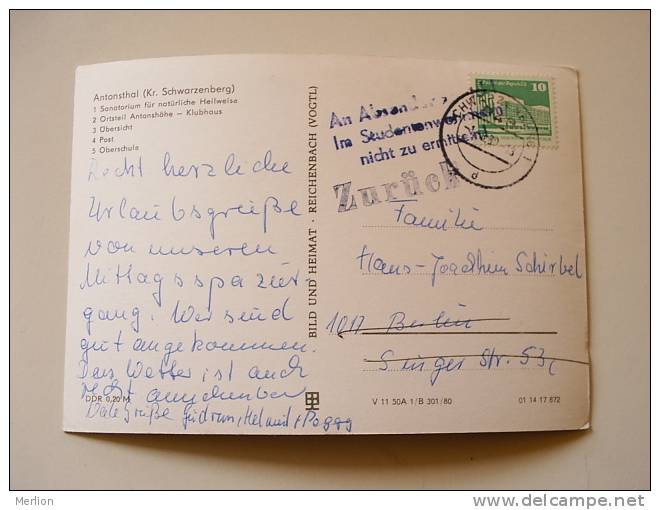 Antonsthal (Kr. Schwarzenberg)
1 Sanatorium für natürliche Heilweise
2 Ortsteil Antonshöhe – Klubhaus
3 Übersicht
4 Post
5 Oberschule
Recht herzliche
Urlaubsgrüße
von unseren
Mittagsspazier-
gang. Wir sind
gut angekommen.
Das Wetter ist auch
recht annehmbar
Viele Grüße Gudrun, Helmut +
DDR 0,20 M
BILD UND HEIMAT · REICHENBACH (VOGTL)
An Absender
Im Studentenwohnheim
nicht zu ermitteln
Zurück
10
SCHWARZ
Familie
Hans-Joachim Schirbel
1017 Berlin
Singer Str. 53
V 11 50 A 1/B 301/80
01 14 17 672
Merlion
www.delcampe.net